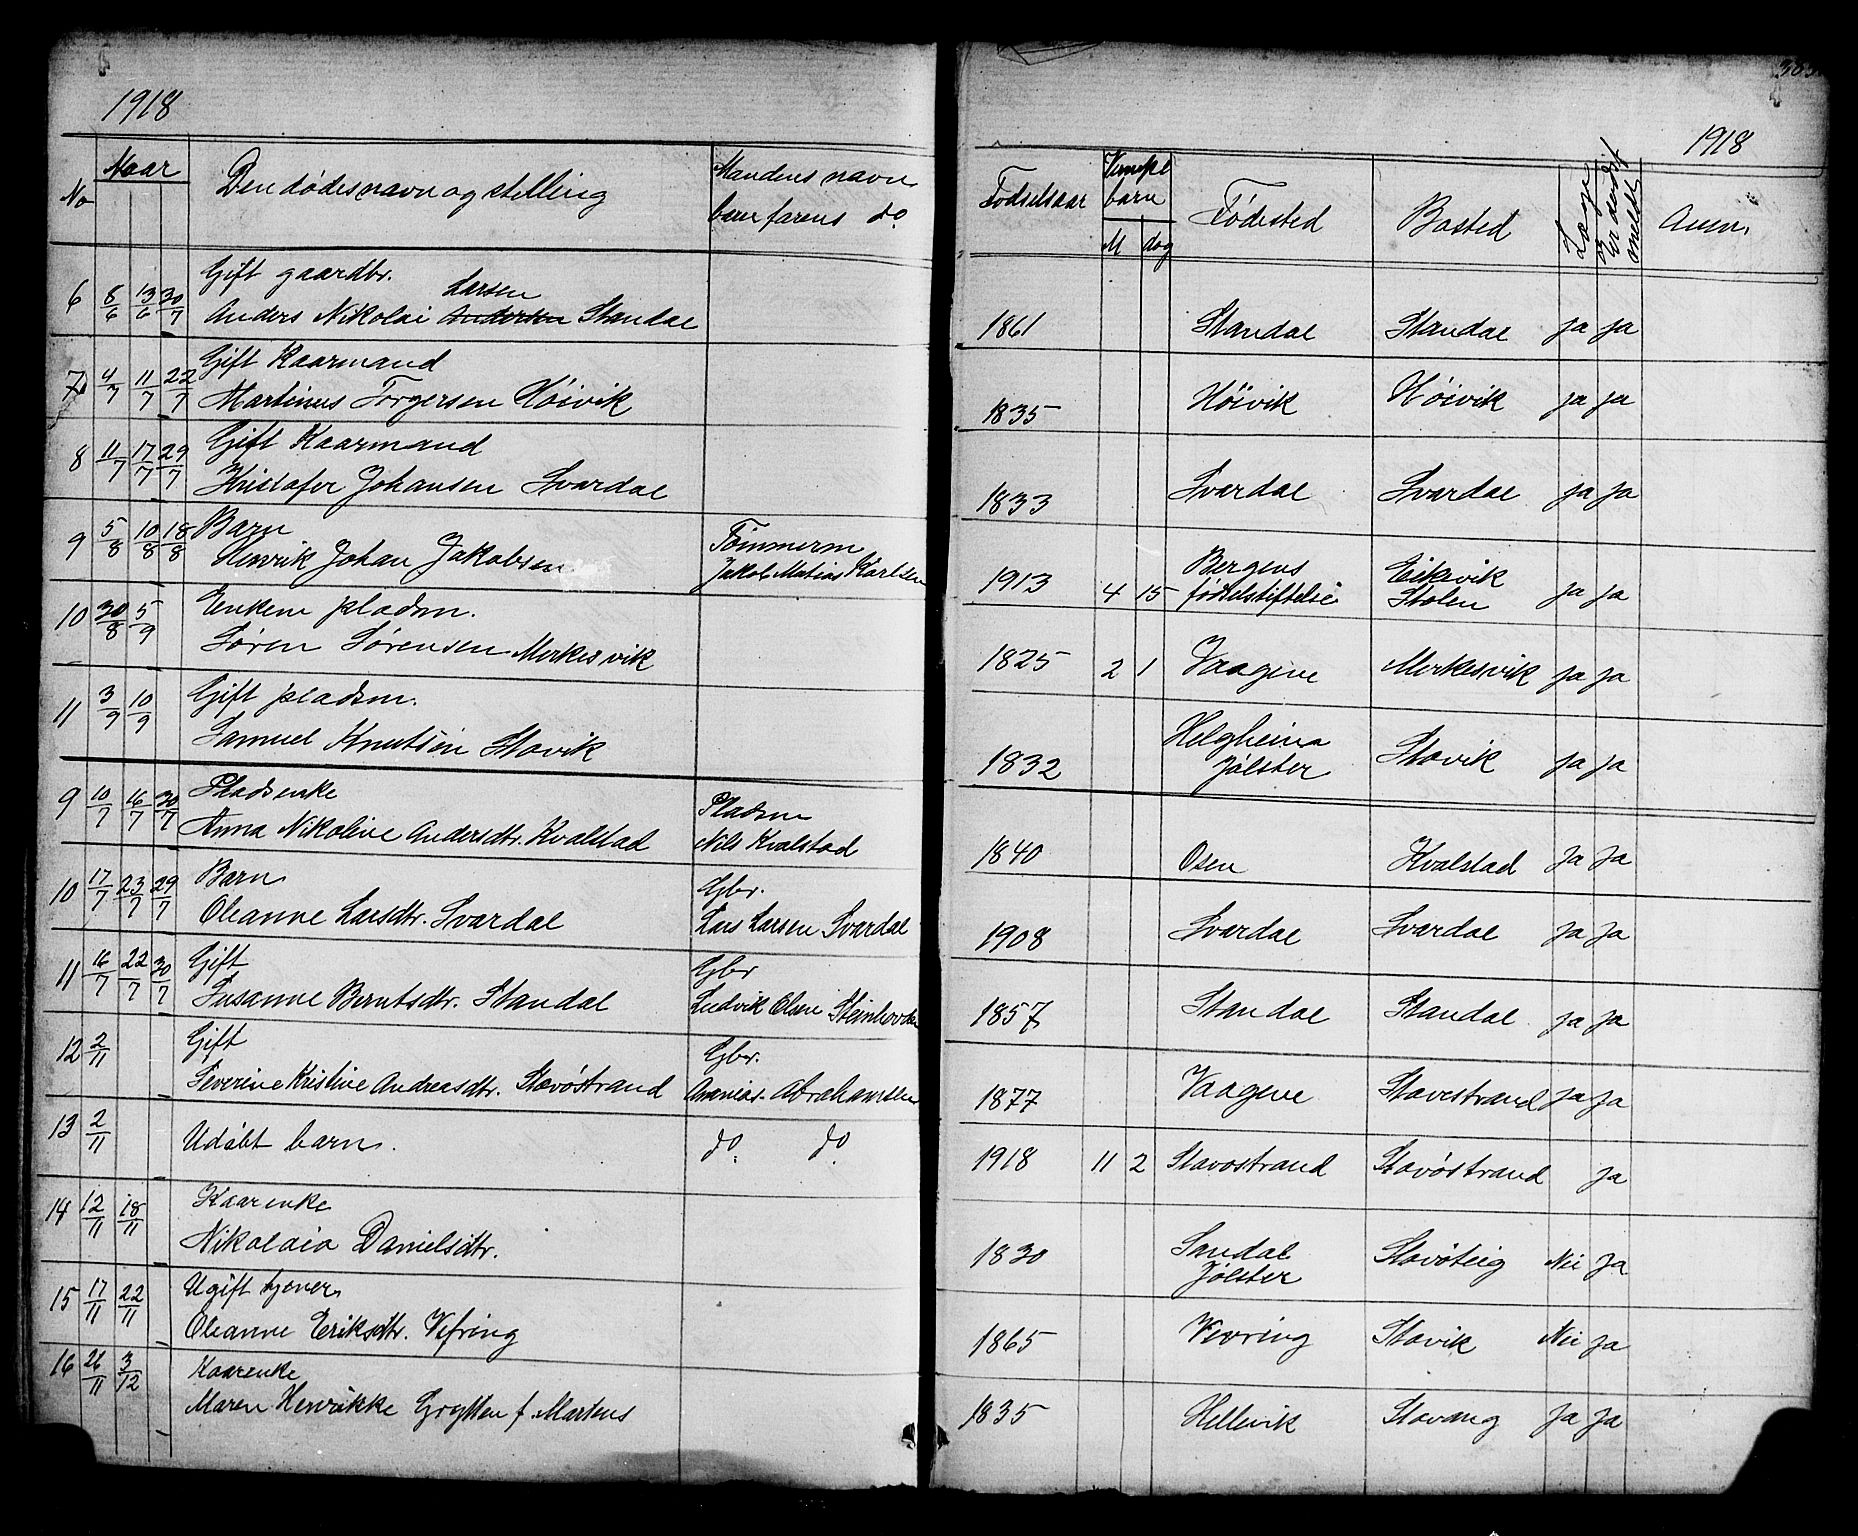 1918
No
Naar
Den dødes navn og stelling
Mandens navn
barn farens do.
6 8/6 13/6 30/7 Gift gaardbr.
Larsen
Anders Nikolai Andersen Standal
7 4/7 11/7 22/7 Gift Kaarmand
Martinus Torgersen Høivik
8 11/7 17/7 29/7 Gift Kaarmand
Kristofer Johansen Svardal
9 5/8 10/8 18/8 Barn
Henrik Johan Jakobsen
Tømmerm
Jakob Matias Karlsen
10 30/8 5/9 Enkem pladsm.
Søren Sørensen Merkesvik
11 3/9 10/9 Gift pladsm.
Samuel Knutsen Stavik
9 10/7 16/7 30/7 Pladsenke
Anna Nikoline Andersdtr. Kvalstad
Pladsm
Nils Kvalstad
10 17/7 23/7 29/7 Barn
Oleanne Larsdtr. Svardal
Gbr.
Lars Larsen Svardal
11 16/7 22/7 30/7 Gift
Susanne Berntsdtr. Standal
Gbr
Ludvik Olsen Steinhovden
12 2/11 Gift
Severine Kristine Andreasdtr. Stavøstrand
Gbr.
Ananias Abrahamsen
13 2/11 Udøbt barn.
do. do.
14 12/11 18/11 Kaarenke
Nikolaia Danielsdtr.
15 17/11 22/11 Ugift tjener
Oleanne Eriksdtr. Vefring
16 26/11 3/12 Kaarenke
Maren Henrikke Grytten f. Martens
1918
Fødselsaar
barn
M dag
Fødested
Bosted
Læge
Er dødsf
meldt
Anm.
1861 Standal Standal ja ja
1835 Høivik Høivik ja ja
1833 Svardal Svardal ja ja
1913 4 15 Bergens
fødselstiftelse
Eikevik
Stølen ja ja
1825 2 1 Vaagene Merkesvik ja ja
1832 Helgheim
Jølster
Stavik ja ja
1840 Osen Kvalstad ja ja
1908 Svardal Svardal ja ja
1857 Standal Standal ja ja
1877 Vaagene Stavestrand ja ja
1918 11 2 Stavostrand Stavøstrand ja
1830 Sandal
Jølster
Stavøteig Nei ja
1865 Vevring Stavik Nei ja
1835 Hellevik Stavang ja ja